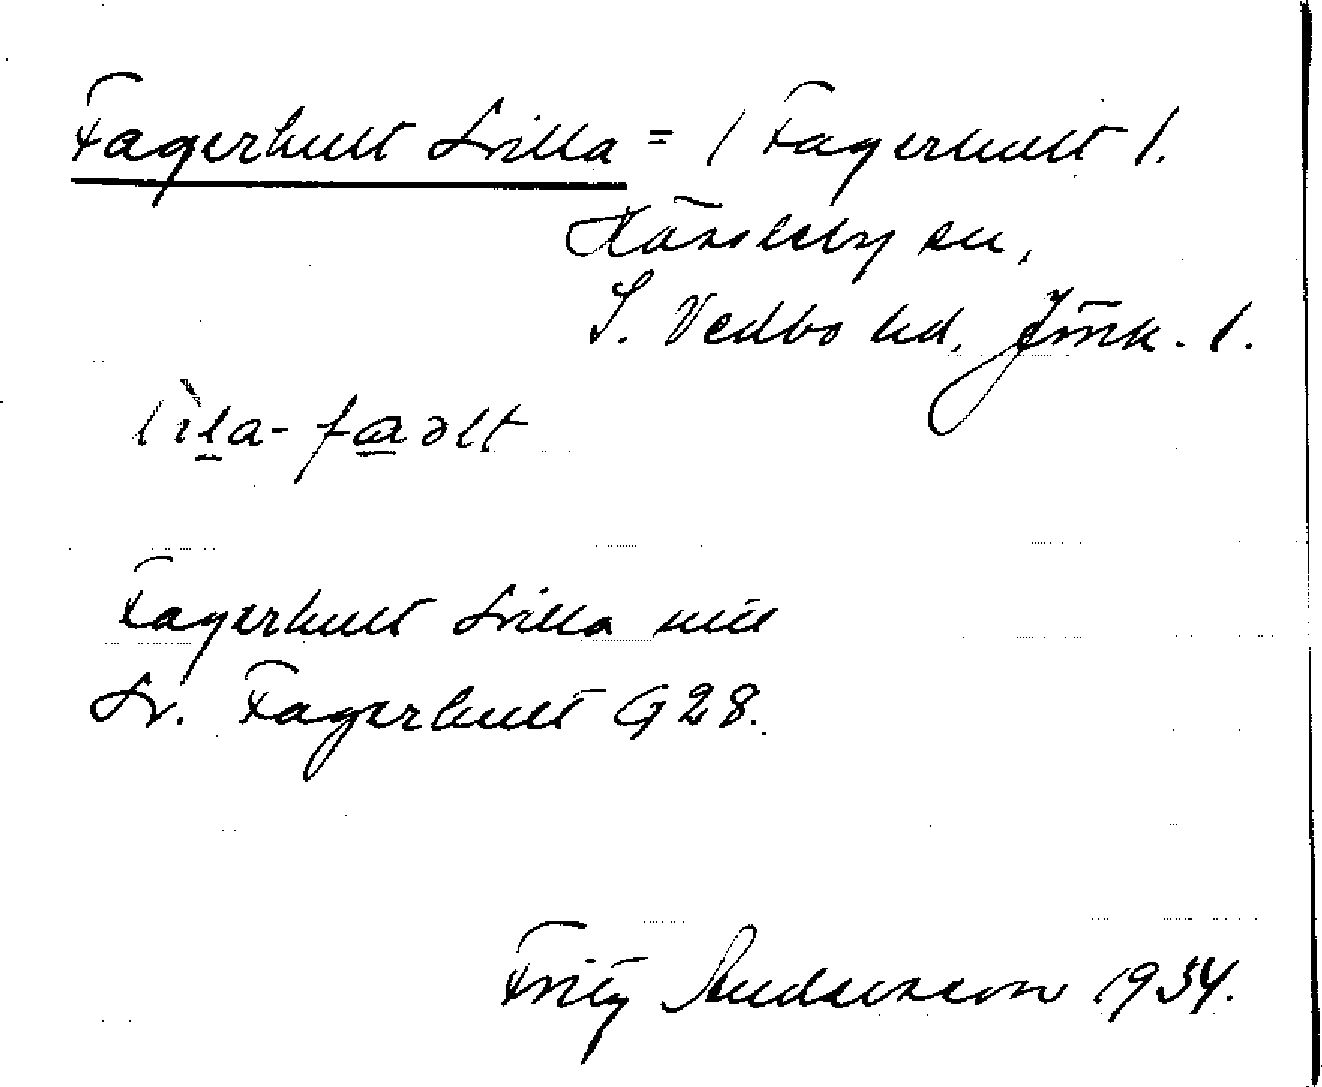 Fagerhult Lilla = 1 Fagerhult 1.
Hässleby sn,
S. Vedbo hd, Jönk. l.
Fagerhult Lilla mtl
L. Fagerhult G 28.
Fritz Andersson 1934.